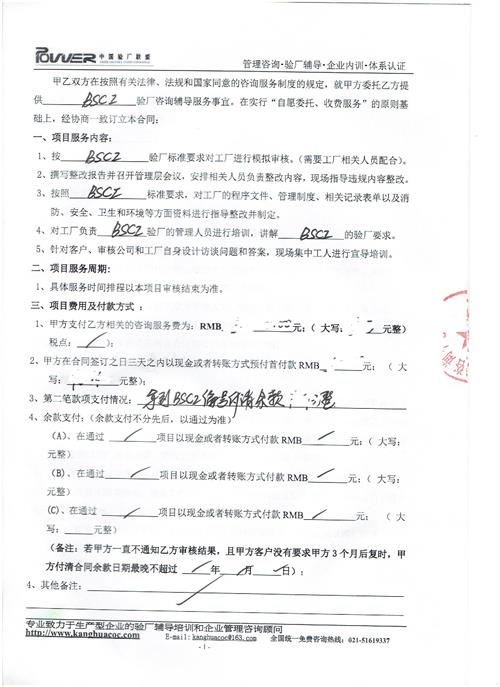 POWER 中国验厂联盟
管理咨询·验厂辅导·企业内训·体系认证
甲乙双方在按照有关法律、法规和国家同意的咨询服务制度的规定，就甲方委托乙方提
供 BSCI 验厂咨询辅导服务事宜。在实行“自愿委托、收费服务”的原则基
础上，经协商一致订立本合同：
一、项目服务内容：
1、按 BSCI 验厂标准要求对工厂进行模拟审核。（需要工厂相关人员配合）。
2、撰写整改报告并召开管理层会议，安排相关人员负责整改内容，现场指导违规内容整改。
3、按照 BSCI 标准要求，对工厂的程序文件、管理制度、相关记录表单以及消
防、安全、卫生和环境等方面资料进行指导整改并制定。
4、对工厂负责 BSCI 验厂的管理人员进行培训，讲解 BSCI 的验厂要求。
5、针对客户、审核公司和工厂自身设计访谈问题和答案，现场集中工人进行宣导培训。
二、项目服务周期：
1、具体服务时间排程以本项目审核结束为准。
三、项目费用及付款方式：
1、甲方支付乙方相关的咨询服务费为：RMB 元；（大写： 元整）
税点：（ / ）；
2、甲方在合同签订之日三天之内以现金或者转账方式预付首付款 RMB 元；（大
写： 元整）；
3、第二笔款项支付情况： 拿到BSCI 付清余款
4、余款支付：（余款支付不分先后，以通过为准）
（A）、在通过 / 项目以现金或者转账方式付款 RMB / 元；（大写：
元整）
（B）、在通过 / 项目以现金或者转账方式付款 RMB / 元；（大写：
元整）
（C）、在通过 / 项目以现金或者转账方式付款 RMB / 元；（大
写： 元整）
（备注：若甲方一直不通知乙方审核结果，且甲方客户没有要求甲方 3 个月后复时，甲
方付清合同余款日期最晚不超过 / 年 / 月 / 日）；
4、其他备注：
专业致力于生产型企业的验厂辅导培训和企业管理咨询顾问
http://www.kanghuacoc.com E-mail:kanghuacoc@163.com 全国统一免费咨询热线：021-51619337
- 1 -